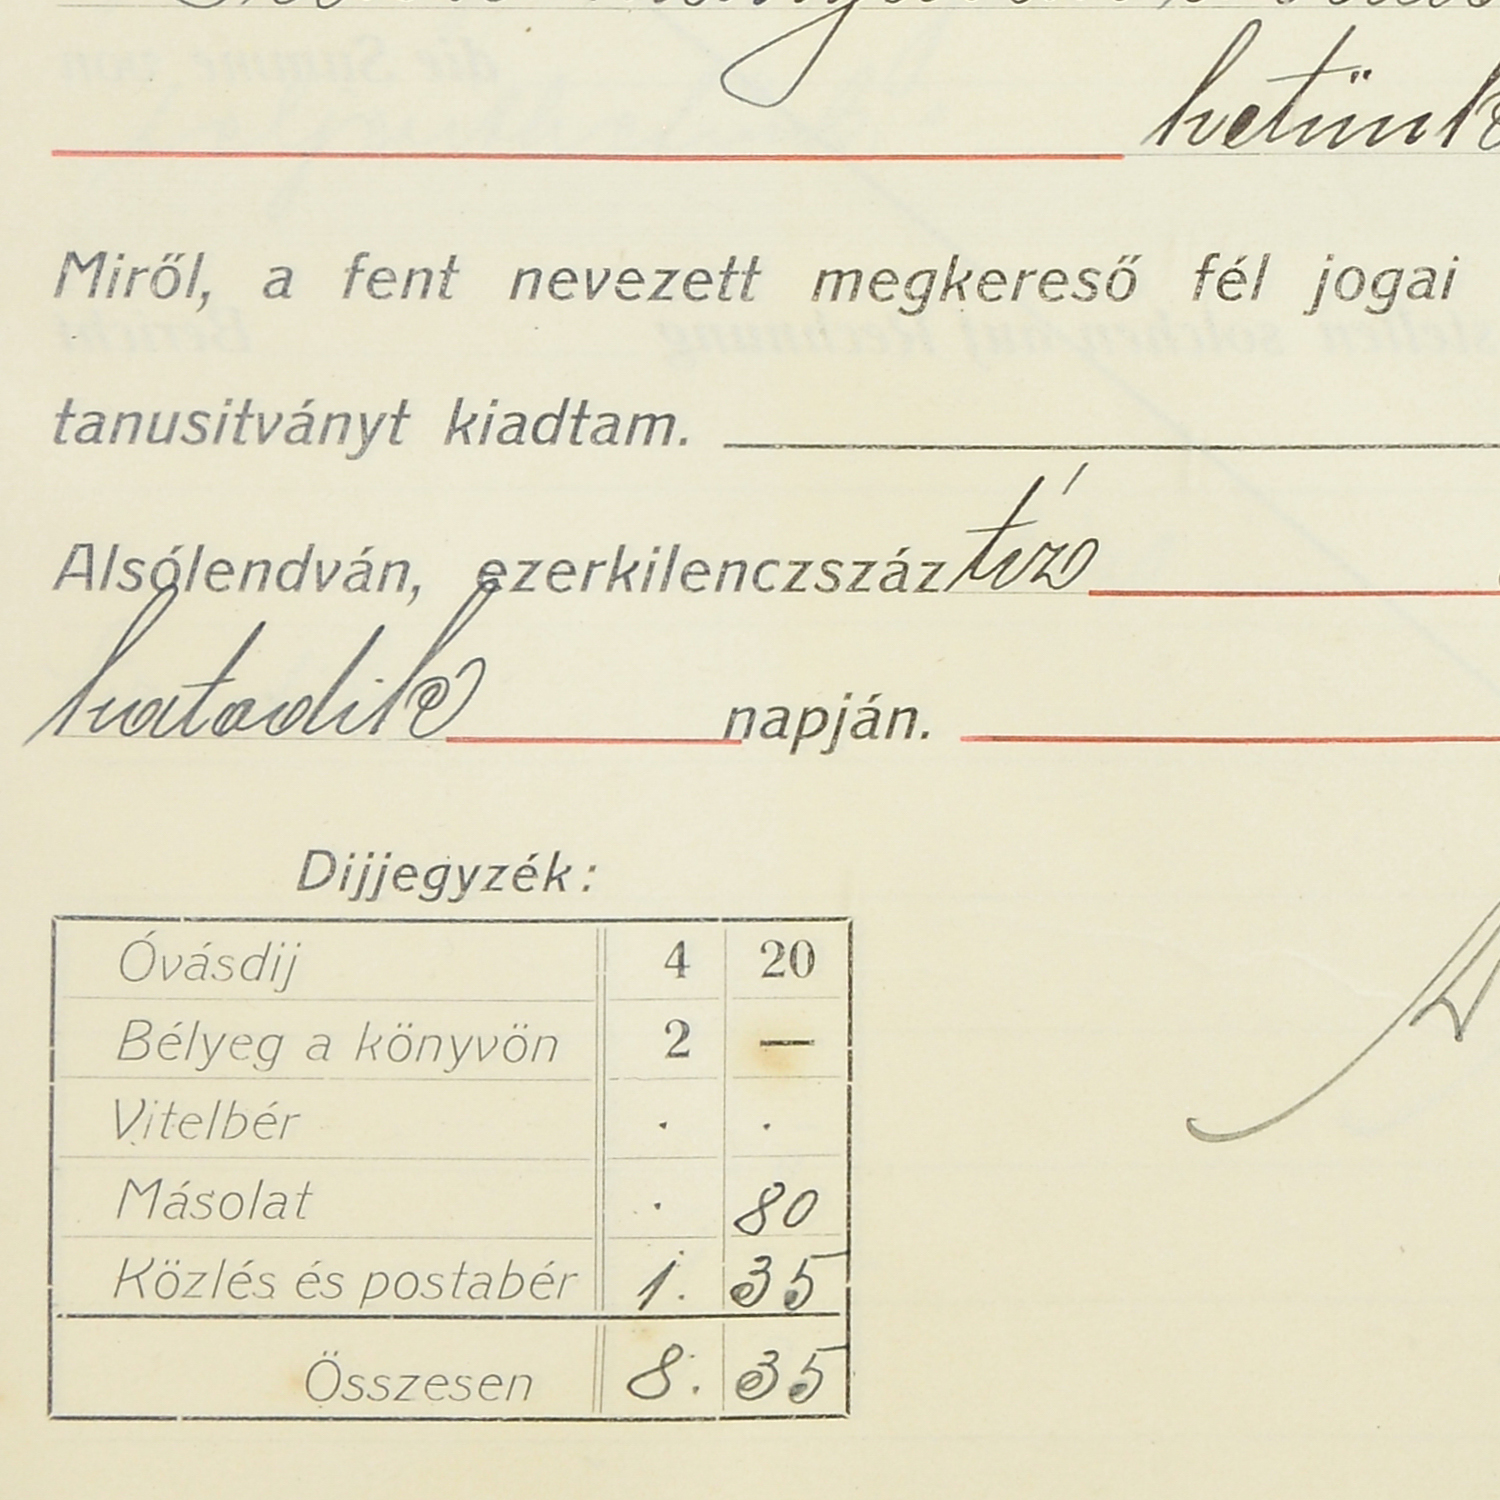 hetünk
Miről, a fent nevezett megkereső fél jogai
tanusitványt kiadtam.
Alsólendván, ezerkilenczszáz tíz
hatodik napján.
Dijjegyzék:
Óvásdij 4 20
Bélyeg a könyvön 2 —
Vitelbér . .
Másolat . 80
Közlés és postabér 1. 35
Összesen 8. 35